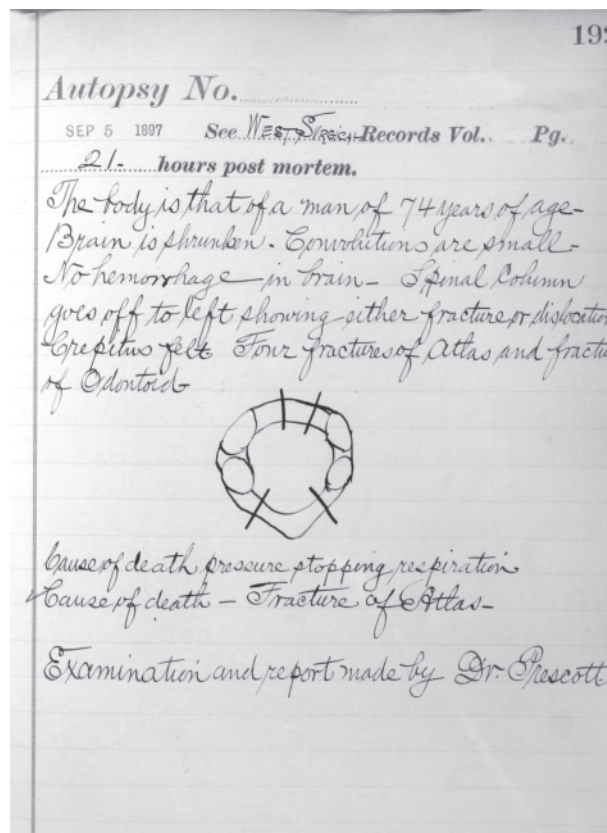 192
Autopsy No.
SEP 5 1897 See West Surgical Records Vol. Pg.
21- hours post mortem.
The body is that of a man of 74 years of age-
Brain is shrunken. Convolutions are small-
No hemorrhage in brain- Spinal Column
goes off to left showing either fracture or dislocation
Crepitus felt Four fractures of Atlas and fractu
of Odontoid
Cause of death pressure stopping respiration
Cause of death - Fracture of Atlas-
Examination and report made by Dr. Prescott